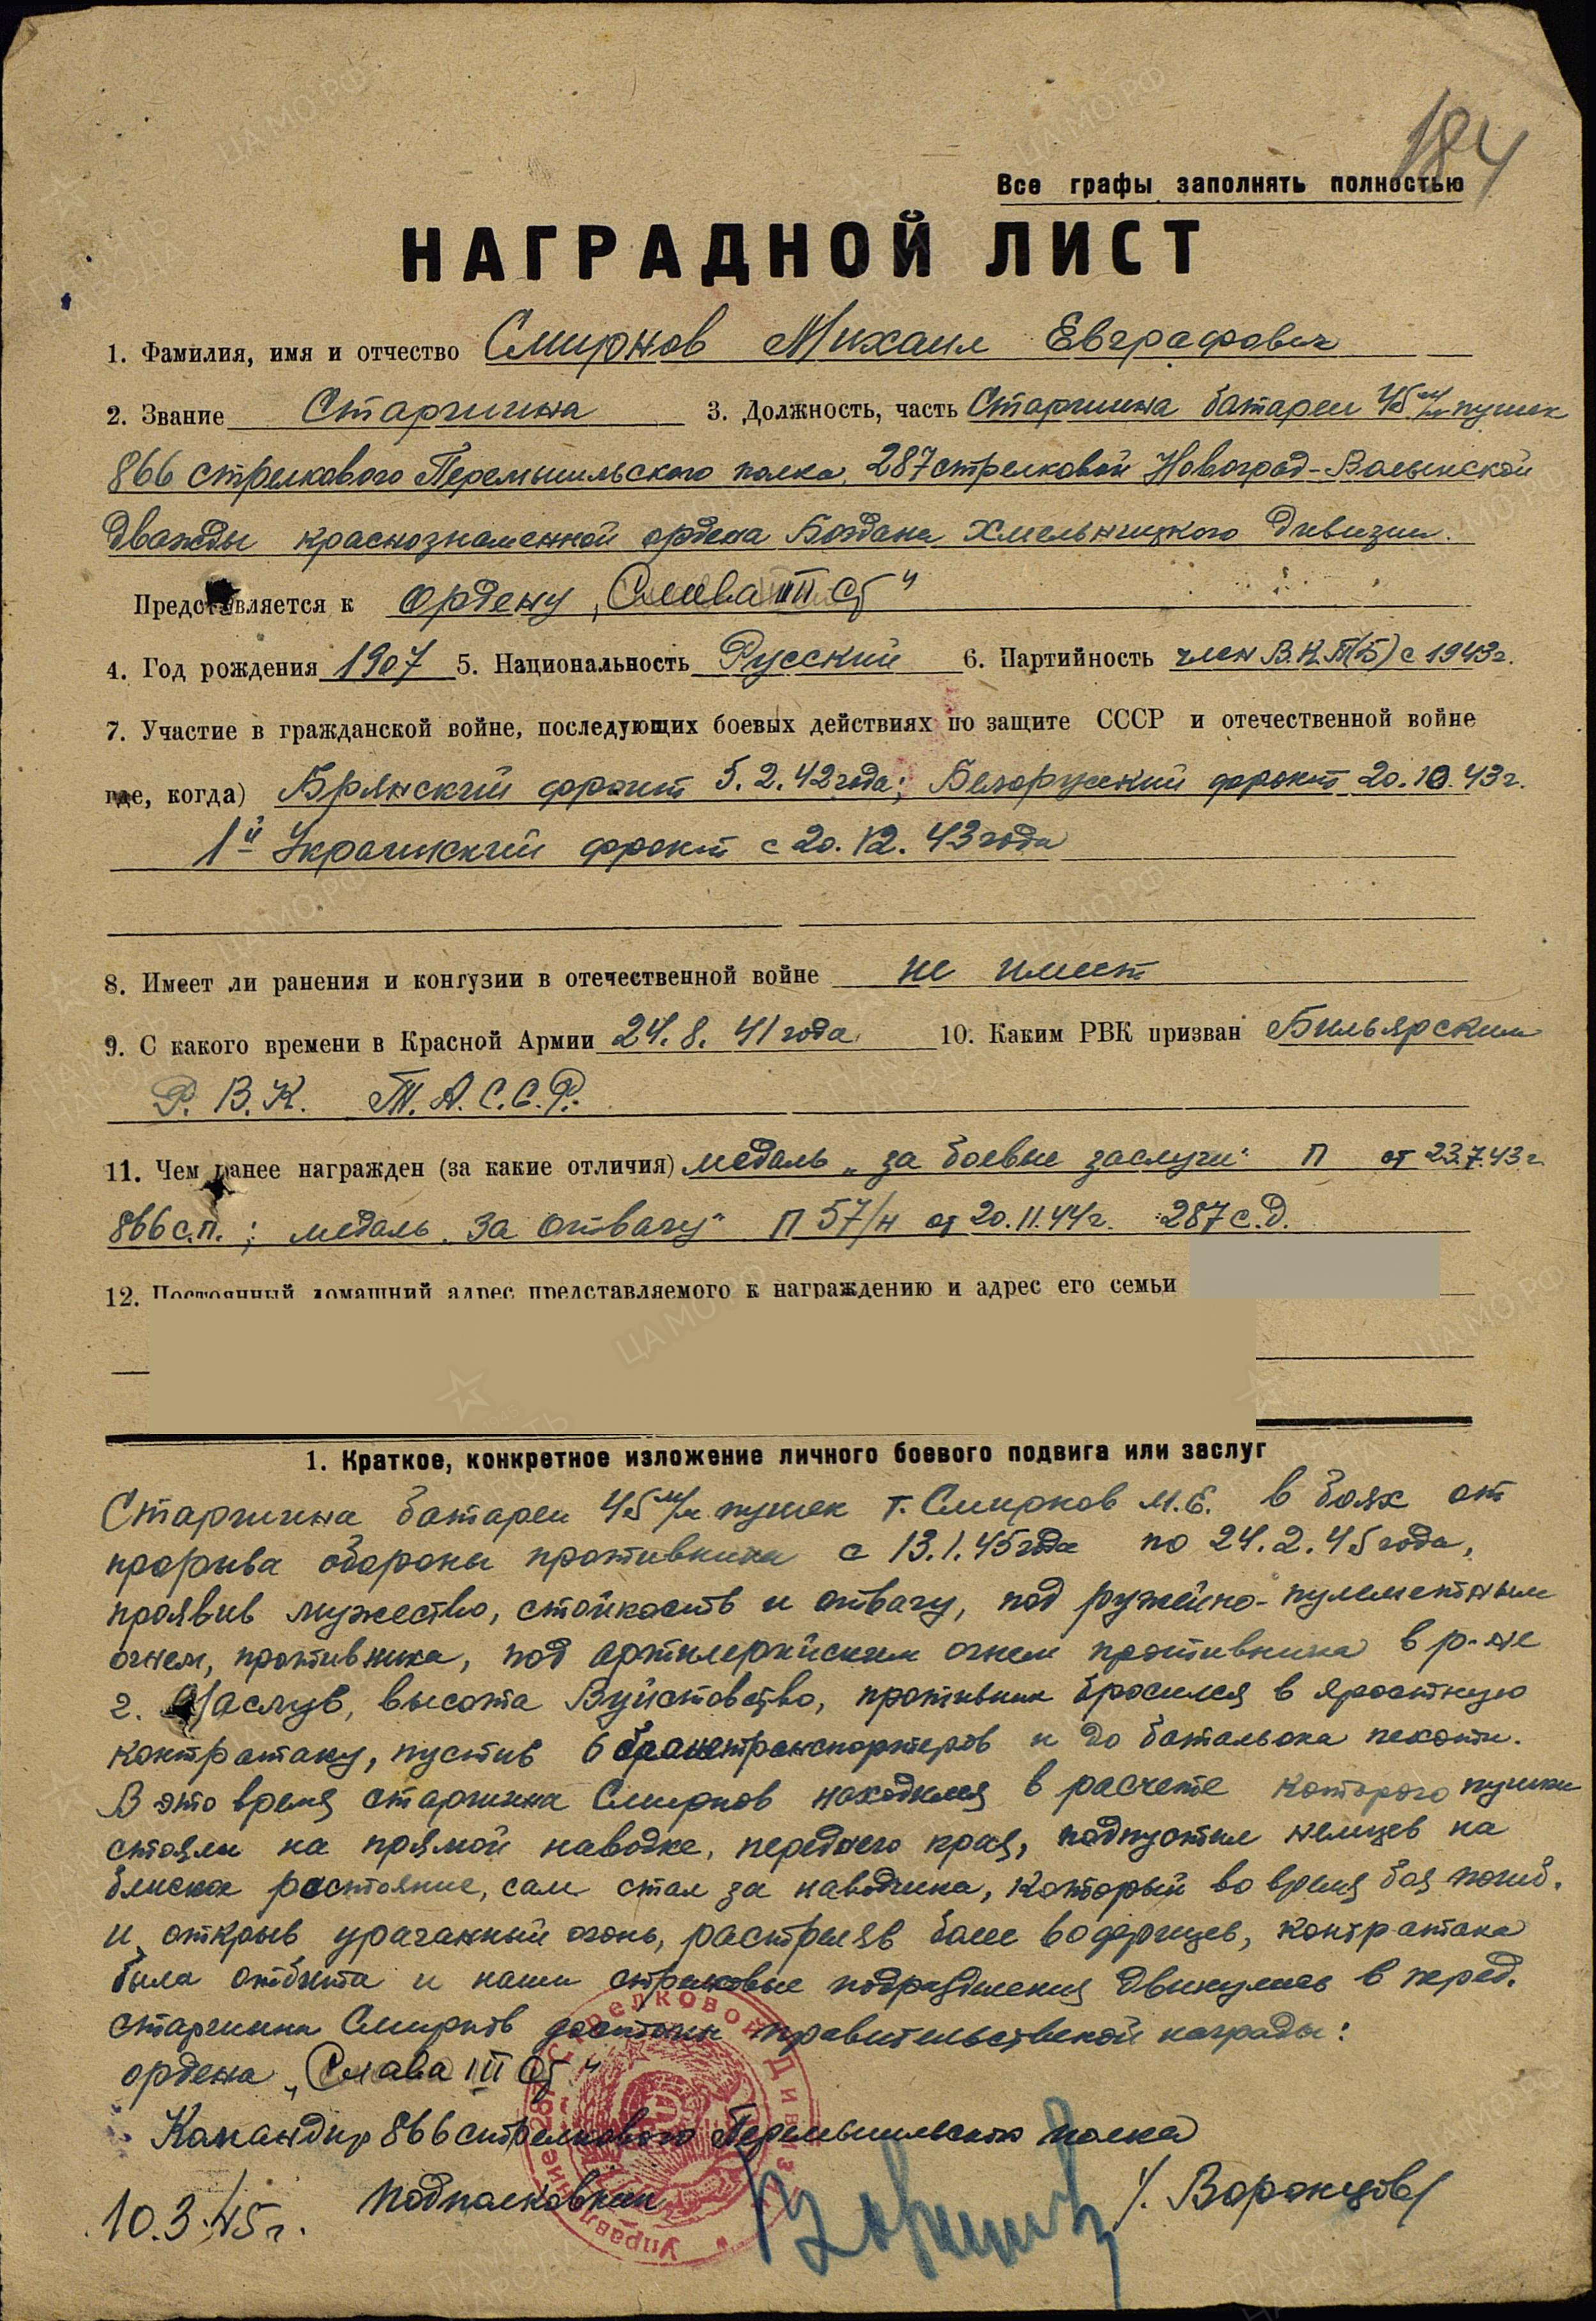 184
Все графы заполнять полностью
НАГРАДНОЙ ЛИСТ
1. Фамилия, имя и отчество Смирнов Михаил Евграфович
2. Звание Старшина 3. Должность, часть Старшина батареи 45 м/м пушек
866 стрелкового Перемышильского полка, 287 стрелковой Новоград-Волынской
дважды краснознаменной ордена Богдана Хмельницкого дивизии.
Представляется к ордену „Слава III ст"
4. Год рождения 1907 5. Национальность Русский 6. Партийность член В.К.П(б) с 1943г.
7. Участие в гражданской войне, последующих боевых действиях по защите СССР и отечественной войне
где, когда) Брянский фронт 5.2.42 года; Белорусский фронт 20.10.43г.
1й Украинский фронт с 20.12.43 года
8. Имеет ли ранения и контузии в отечественной войне не имеет
9. С какого времени в Красной Армии 24.8.41 года 10. Каким РВК призван Бильярским
Р.В.К. Т.А.С.С.Р.
11. Чем ранее награжден (за какие отличия) медаль „за боевые заслуги" П от 23.7.43г
866 с.п.; медаль „За отвагу" П 57/н от 20.11.44г. 287 с.д.
12. Постоянный домашний адрес представляемого к награждению и адрес его семьи
1. Краткое, конкретное изложение личного боевого подвига или заслуг
Старшина батареи 45 м/м пушек т. Смирнов М.Е. в боях от
прорыва обороны противника с 13.1.45 года по 24.2.45 года,
проявив мужество, стойкость и отвагу, под ружейно-пулеметным
огнем, противника, под артилерийским огнем противника в р-не
г. высота противник бросился в яростную
контратаку, пустив 6 бранетранспортеров и до батальона пехоты.
В это время старшина Смирнов находился в расчете которого пушки
стояли на прямой наводке, переднего края, подпустил немцев на
близкое растояние, сам стал за наводчика, который во время боя погиб,
и открыв ураганный огонь, растреляв контратака
была отбита и наши стрелковые подразделения двинулись в перед.
старшина Смирнов достоин правительственной награды:
ордена „Слава III ст"
Командир 866 стрелкового Перемышильского полка
Подполковник /Воронцов/
10.3.45г.
Управление 287 Стрелковой Дивизии
ЦА МО РФ